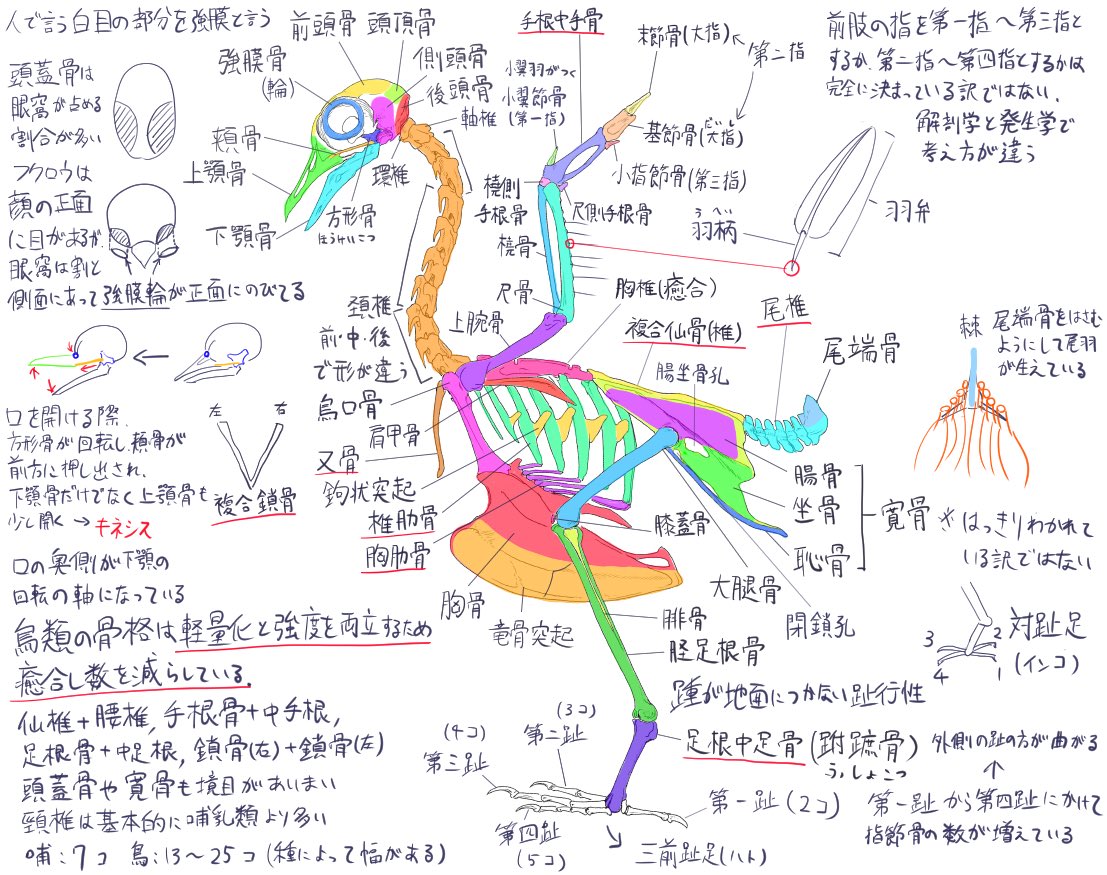 人で言う白目の部分を強膜と言う
頭蓋骨は
眼窩が占める
割合が多い
フクロウは
顔の正面
に目があるが、
眼窩は割と
側面にあって強膜輪が正面にのびてる
前頭骨
頭頂骨
強膜骨
(輪)
側頭骨
後頭骨
頬骨
軸椎
上顎骨
環椎
方形骨
ほうけいこつ
下顎骨
手根中手骨
小翼羽がつく
小翼節骨
(第一指)
末節骨(大指)
第二指
基節骨(大指)
だいし
小指節骨(第三指)
橈側
手根骨
尺側手根骨
橈骨
尺骨
前肢の指を第一指〜第三指と
するか、第二指〜第四指とするかは
完全に決まっている訳ではない、
解剖学と発生学で
考え方が違う
羽弁
うへい
羽柄
頚椎
前・中・後
で形が違う
上腕骨
胸椎(癒合)
複合仙骨(椎)
腸坐骨孔
尾椎
尾端骨
棘
尾端骨をはさむ
ようにして尾羽
が生えている
烏口骨
肩甲骨
叉骨
鉤状突起
椎肋骨
胸肋骨
胸骨
竜骨突起
膝蓋骨
大腿骨
腓骨
脛足根骨
腸骨
坐骨
恥骨
寛骨
※はっきりわかれて
いる訳ではない
閉鎖孔
口を開ける際、
方形骨が回転し、頬骨が
前方に押し出され、
下顎骨だけでなく上顎骨も
少し開く → キネシス
左 右
複合鎖骨
口の奥側が下顎の
回転の軸になっている
鳥類の骨格は軽量化と強度を両立するため
癒合し数を減らしている。
仙椎+腰椎, 手根骨+中手根,
足根骨+中足根, 鎖骨(右)+鎖骨(左)
頭蓋骨や寛骨も境目があいまい
頸椎は基本的に哺乳類より多い
哺:7コ 鳥:13〜25コ(種によって幅がある)
踵が地面につかない趾行性
足根中足骨(跗蹠骨)
ふしょこつ
(3コ)
第二趾
(4コ)
第三趾
第四趾
(5コ)
第一趾(2コ)
三前趾足(ハト)
3
2
4
1
対趾足
(インコ)
外側の趾の方が曲がる
第一趾から第四趾にかけて
指節骨の数が増えている